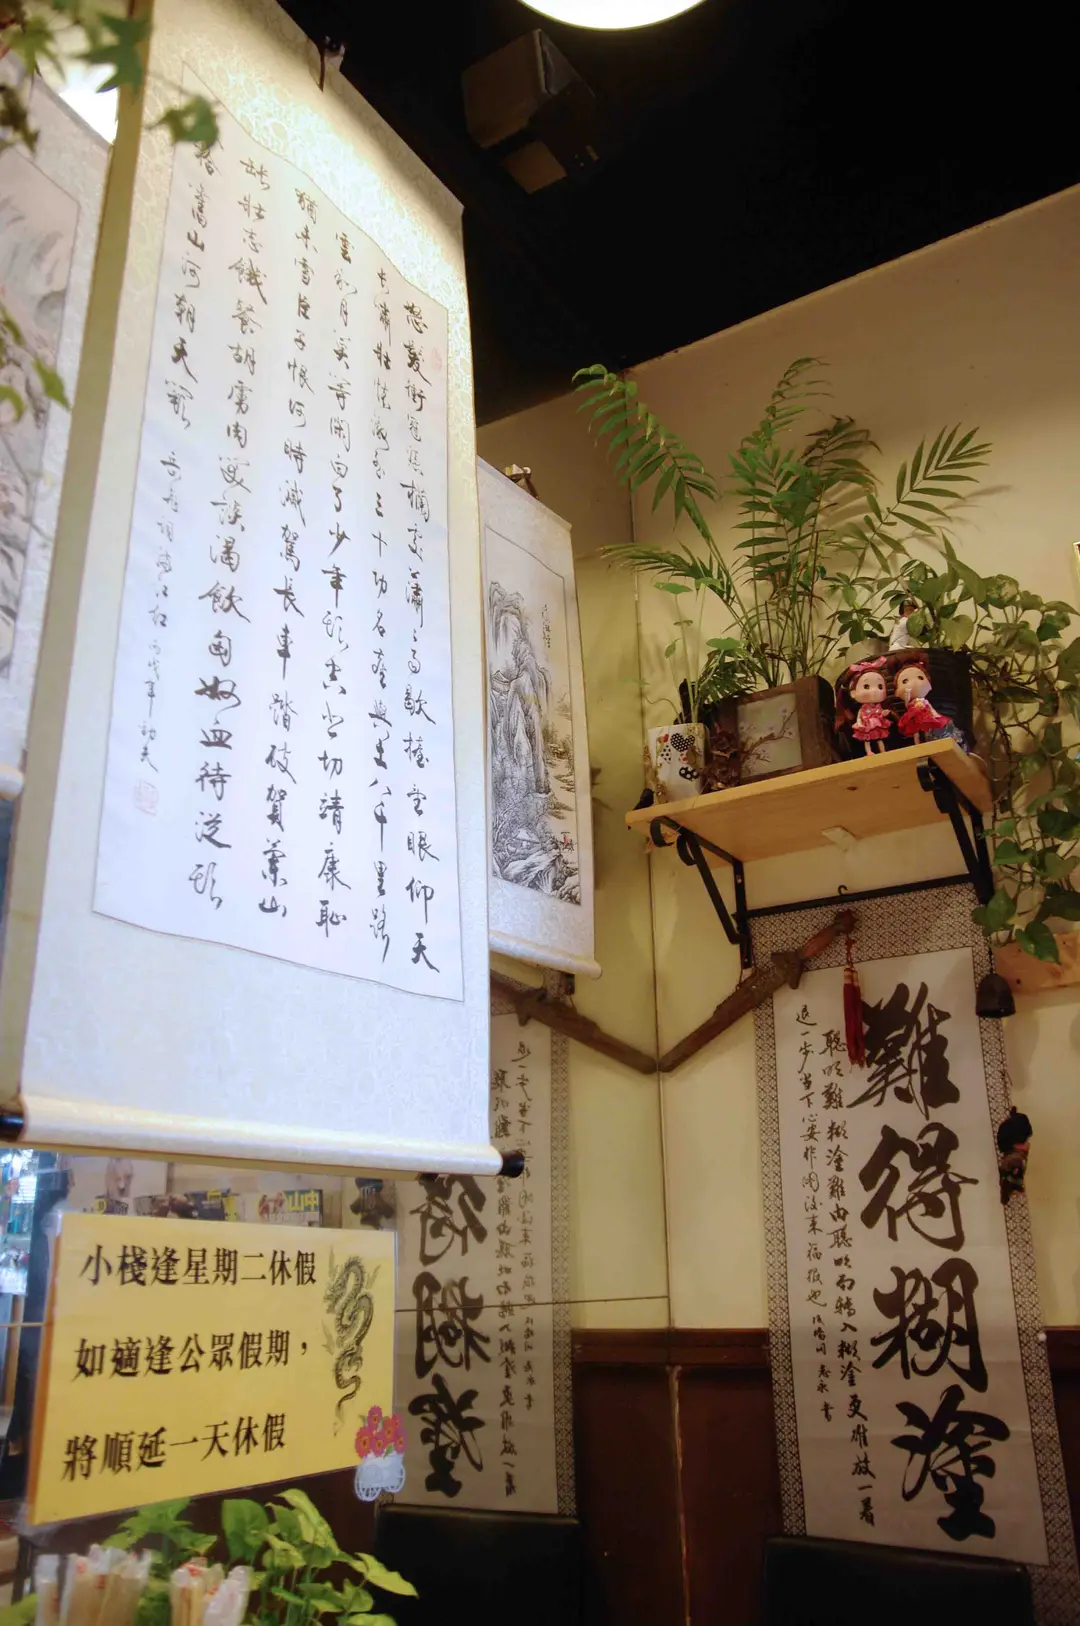 怒髮衝冠憑欄處瀟瀟雨歇擡望眼仰天
長嘯壯懷激烈三十功名塵與土八千里路
雲和月莫等閑白了少年頭空悲切靖康恥
猶未雪臣子恨何時滅駕長車踏破賀蘭山
缺壯志餓餐胡虜肉笑談渴飲匈奴血待從頭
拾舊山河朝天闕 岳飛詞滿江紅 丙戌年
難得糊塗
聰明難糊塗難由聰明而轉入糊塗更難放一着
退一步當下心安非圖後來福報也 志永書
小棧逢星期二休假
如適逢公眾假期，
將順延一天休假